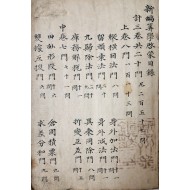 新編算學啓蒙目錄
計三卷共二十門 凡二百五十九問
上卷八門 一百一十三問
縱橫因法門 八問 身外加法門 十一問
留頭乘法門 二十問 身外減法門 十一問
九歸除法門 異乘同除門 八問
庫務解稅門 十一問 折變互差門 十五問
中卷七門 七十一問
田畝形段門 十六問 倉囤積粟門 九問
雙據互換門 六問 求差分和門 九問